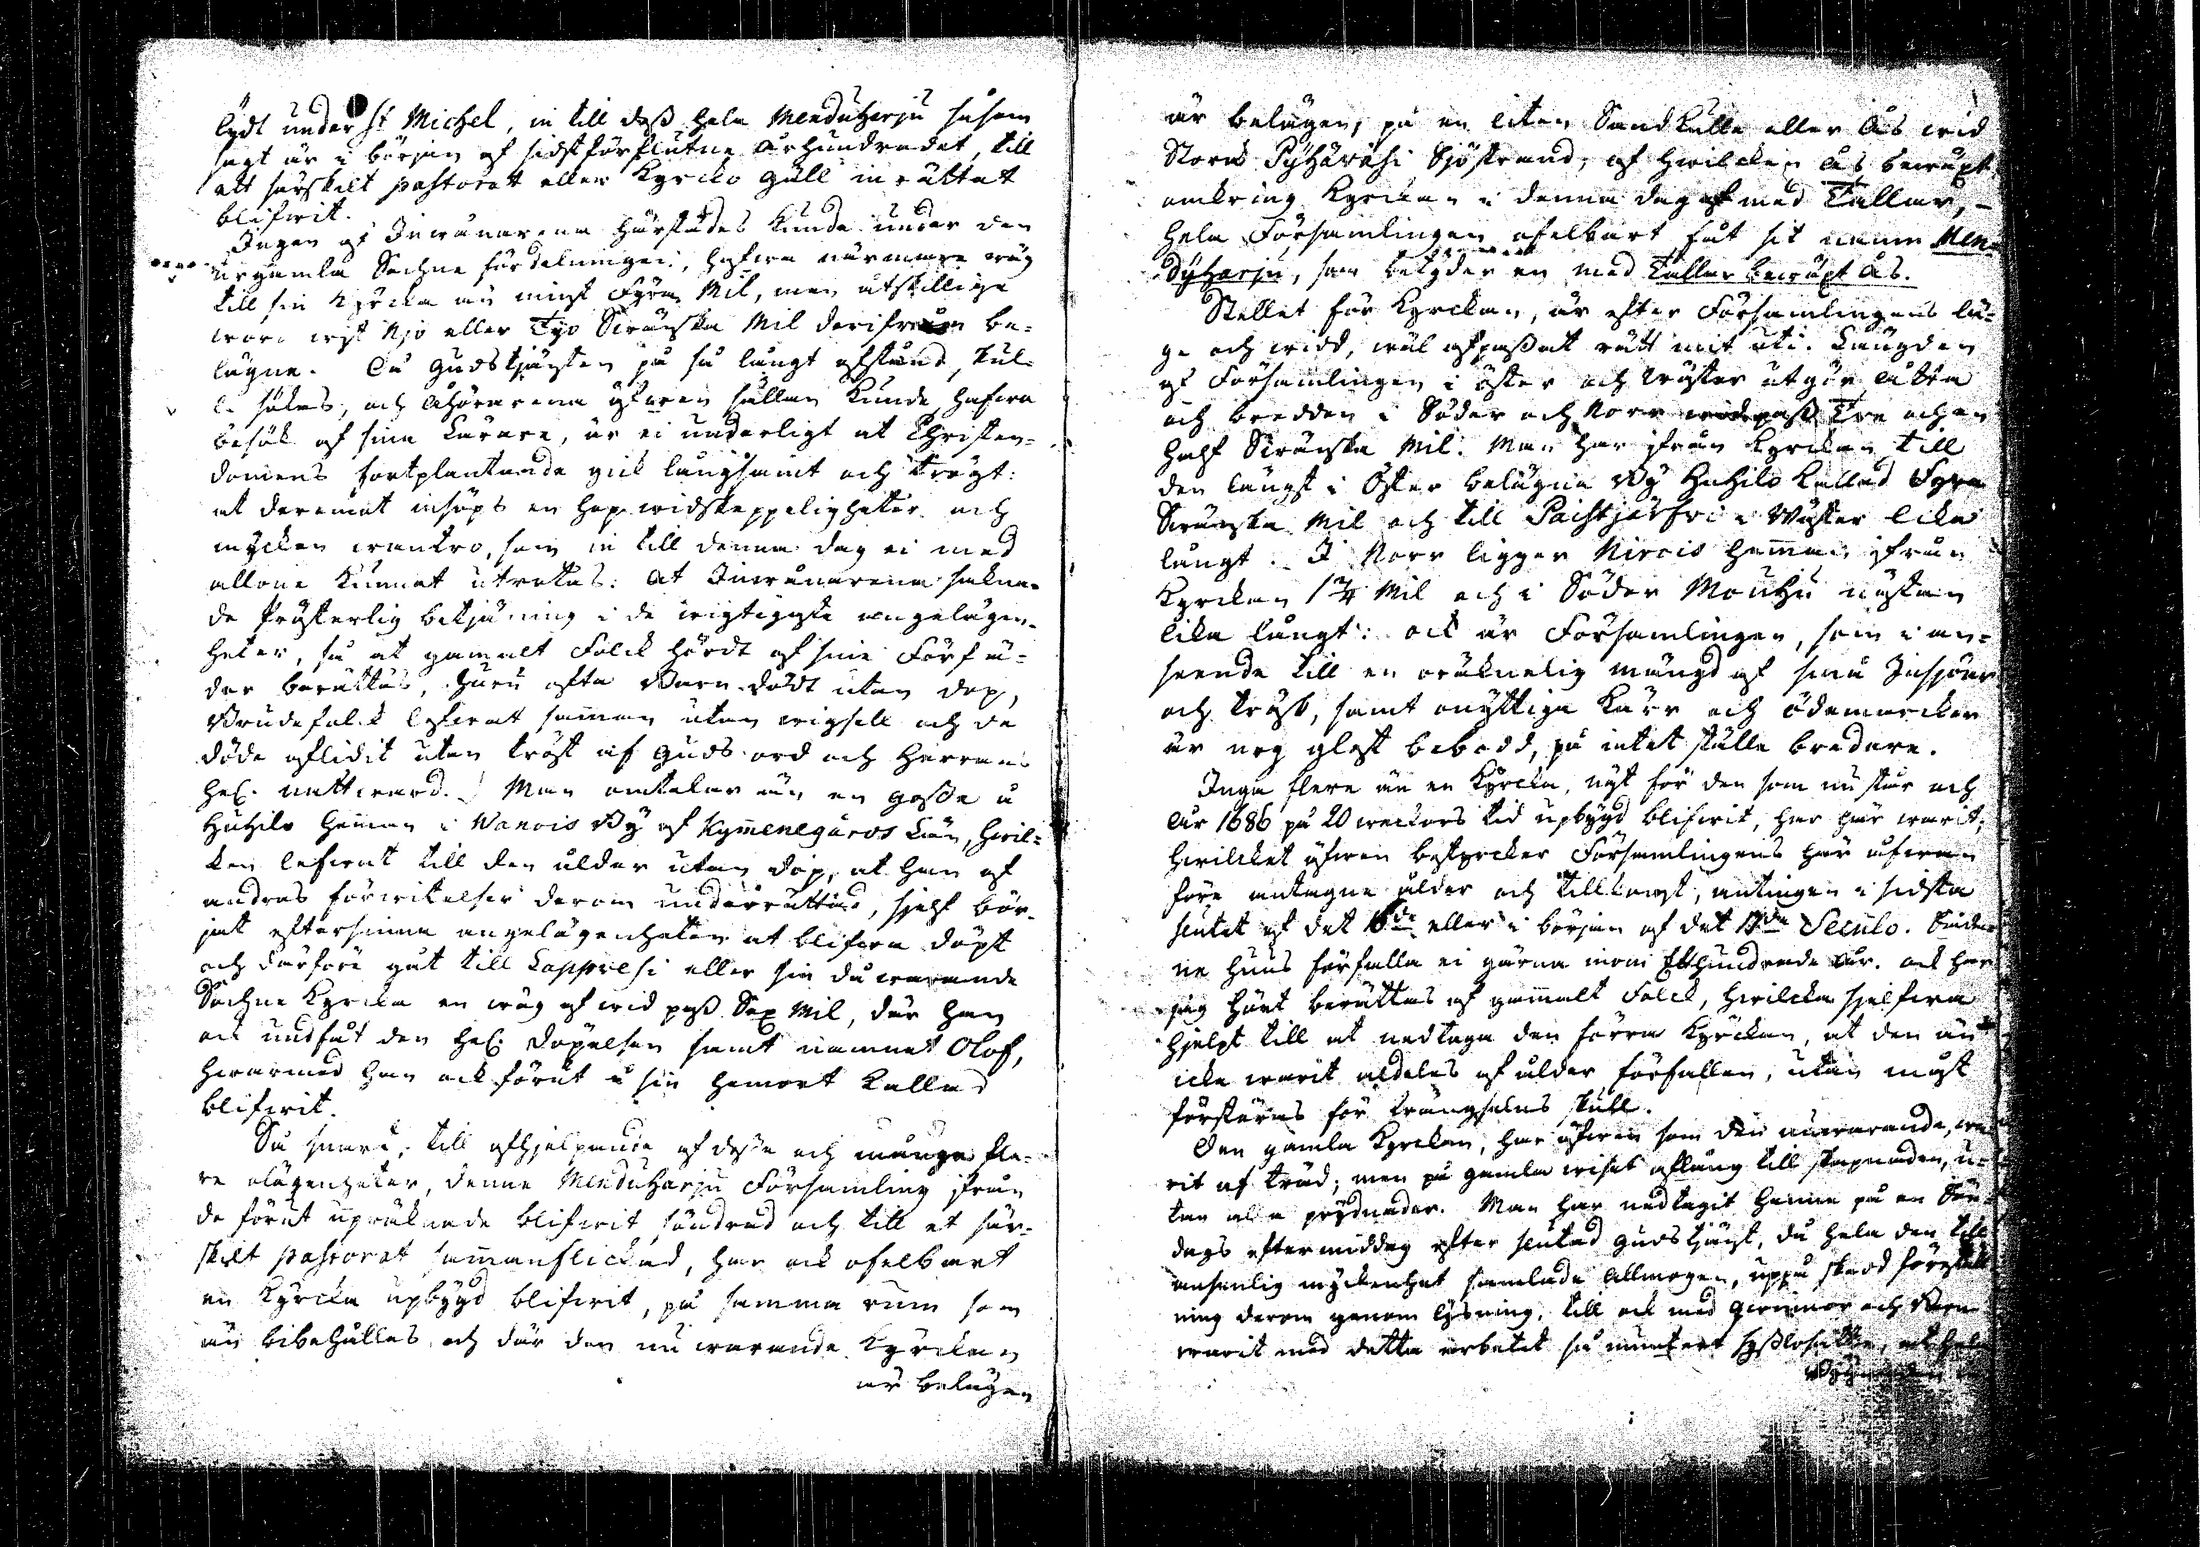 lydt under St Michel, in till dess hela Menduharju såsom
sagt är i början af sidstförflutne århundradet, till
ett särskilt pastorat eller Kyrcko gäll inrättat
blifwit.
Ingen af Inwånarena härstädes kunde under den
urgamla Sochne fördelningen, hafwa närmare wäg
till sin Kyrcka än minst Fyra Mil, men åtskillige
woro wist Njo eller Tijo Swänska Mil derifrån be-
lägne. Då Gudstjensten på så långt afstånd, skul-
le sökas, och åhörarena äfwen sällan kunde hafwa
besök af sina Lärare, är ei underligt at Christen-
domens fortplantande gick långsamt och trögt:
at deremot insöps en hop widskeppeligheter och
mycken wantro, som in till denna dag ei med
allone kunnat utrotas: at Inwånarena sakna-
de Prästerlig betjäning i de wigtigaste angelägen-
heter, så at gamalt Folck hördt af sine Förfä-
der berättas, huru ofta Barn dödt utan dop,
Brudefolck lefwat samman utan wigsell och de
döde aflidit utan tröst af Guds ord och Herrans
hel. nattward. Man omtalar än en gosse å
Huhilo hemman i Wanois By af Kymenegårds Län, hwil-
ken lefwat till den ålder utan dop, at han af
andras förwitelser derom underrättad, sjelf bör-
jat eftersinna angelägenheten at blifwa döpt
och därföre gåt till Lappwesi eller sin då warande
Sochne Kyrcka en wäg af wid pass Sex Mil, där han
ock undfåt den hel. döpelsen samt namnet Olof,
hwarmed han ock förut å sin hemort kallad
blifwit.
Så snart, till afhjelpande af desse och många fle-
re olägenheter, denne Menduharju Församling ifrån
de förut upräknade blifwit söndrad och till et sär-
skilt pastorat sammanflickad, har ock ofelbart
en Kyrcka upbygd blifwit, på samma rum som
än bibehålles och där den nu warande Kyrckan
är belägen
är belägen, på en liten Sandkulle eller Ås wid
Stora Pyhäwäsi Sjöstrand, af hwilcken Ås bewäxt
omkring Kyrckan i denna dag af med Tallar,
hela Församlingen ofelbart fåt sit namn Men-
dyharju, som betyder en med Tallar bewäxt Ås.
Stellet för Kyrckan, är efter Församlingens lä-
ge och widd, wäl afpassat rätt mit uti. Längden
af Församlingen i öster och wäster utgör åtta
och bredden i Söder och Norr widpass Tre och en
half Swänska Mil. Man har ifrån Kyrckan till
den längst i Öster belägna By Huhilo kallad Fyra
Swänska Mil och till Paistjärfwi i Wäster lika
långt. I Norr ligger Nirois hemman ifrån
Kyrckan 1 3/4 Mil och i Söder Mouhu nästan
lika långt: ock är Församlingen, som i an-
seende till en oräknelig mängd af små Insjöar
och träsk, samt onyttiga Kärr och ödemarcker
är nog glest bebodd, på intet ställe bredare.
Inga flere än en Kyrcka, näst för den som nu står och
År 1686 på 20 weckors tid upbygd blifwit, har här warit;
hwilcket äfwen bestyrcker Församlingens här ofwan
före antagne ålder och tillkomst, antingen i sidsta
slutet af det 16de eller i början af det 17de Seculo.
ne huus förfalla ei gärna inom Ett hundrade år. ock har
jag hört berättas af gamalt Folck, hwilcka sjelfwa
hjelpt till at nedtaga den förra Kyrckan, at den än
icke warit aldeles af ålder förfallen, utan måst
förstöras för trängselens skull.
Den gamla Kyrckan, har äfwen som den nuwarande, wa-
rit af träd; men på gamla wiset aflång till skapnaden, u-
tan alla prydnader. Man har nedtagit henne på en Sön-
dags eftermiddag efter slutad Gudstjänst, då hela den till
ansenlig myckenhet samlade Allmogen, uppå skedd förestäl-
ning derom genom lysning, till ock med qwinnor och Barn
warit med detta arbetet så muntert sysslosatte, at hela